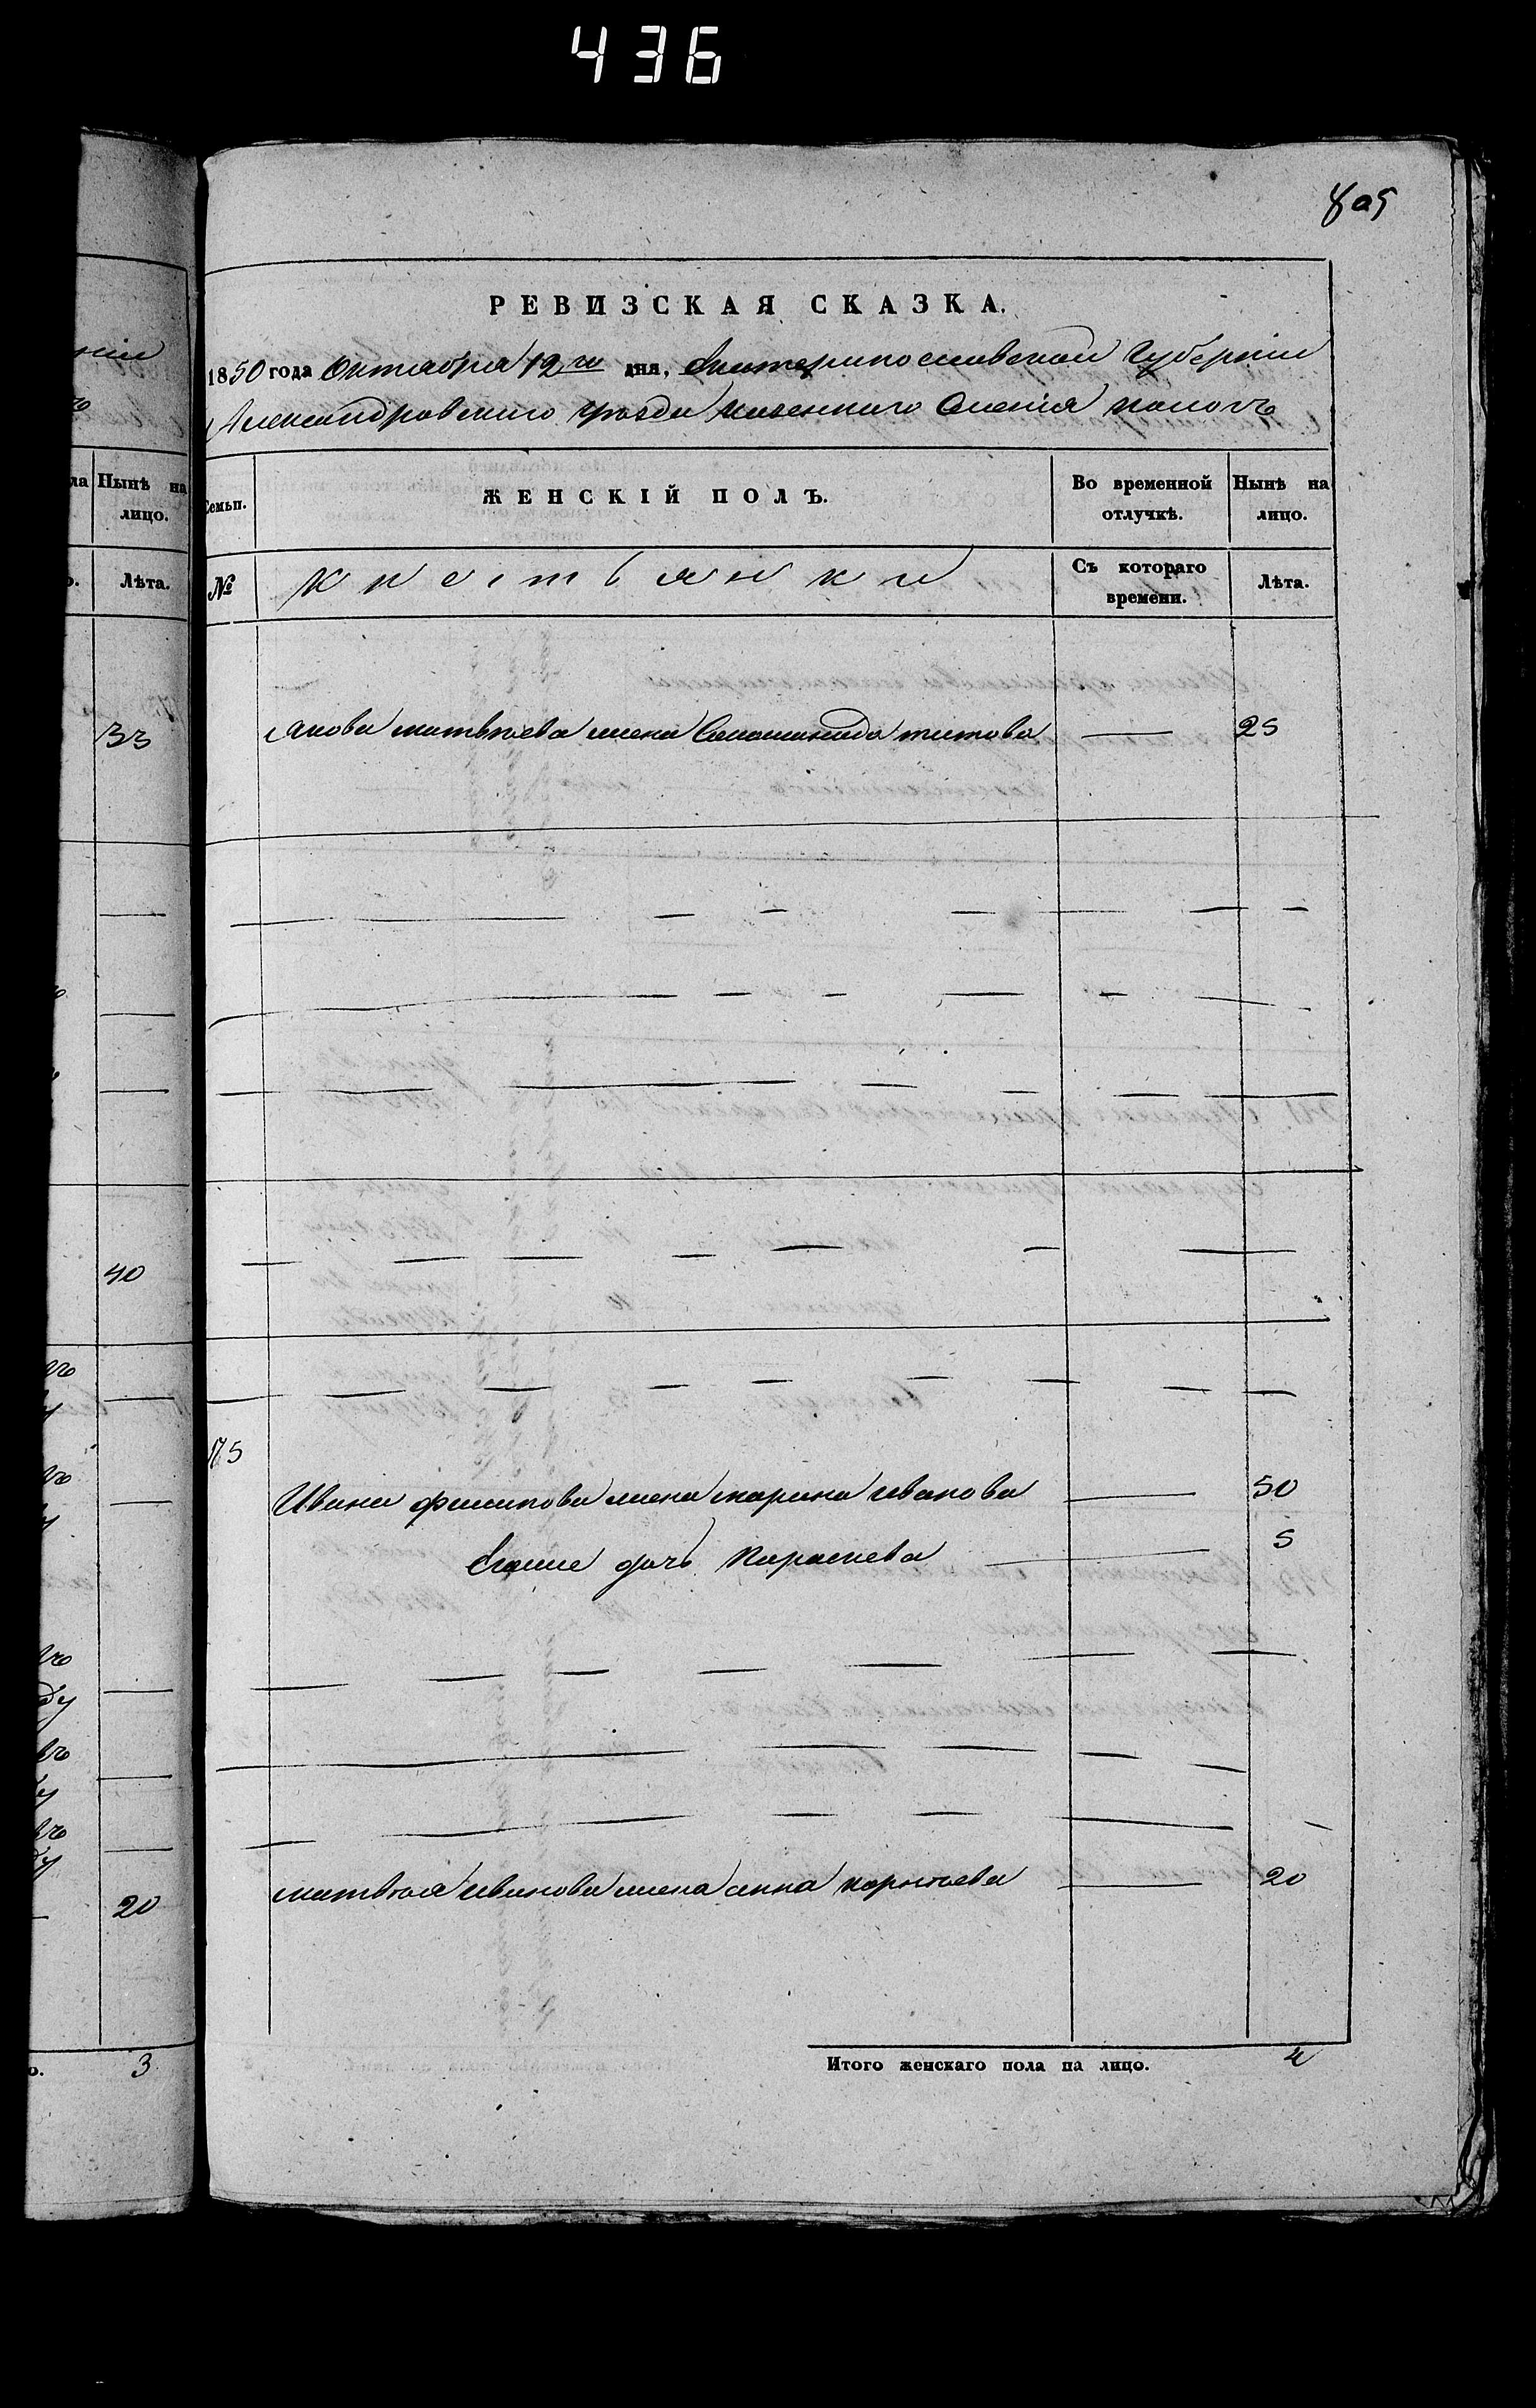 436
809
РЕВИЗСКАЯ СКАЗКА.
1850 года Октября 12го дня, Екатеринославской Губернии
Александровского уезда казенного Селения
Семьи. ЖЕНСКІЙ ПОЛЪ. Во временной отлучкѣ. Нынѣ на лицо.
№ Крестьянки Съ котораго времени. Лѣта.
Якова матвѣева жена Соломонида титова — 25
175
Ивана филипова жена марина иванова — 50
Егоже дочь Параскева — 5
матвѣя иванова жена анна — 20
Итого женскаго пола на лицо. 4
Нынѣ на лицо.
Лѣта.
33
40
20
3